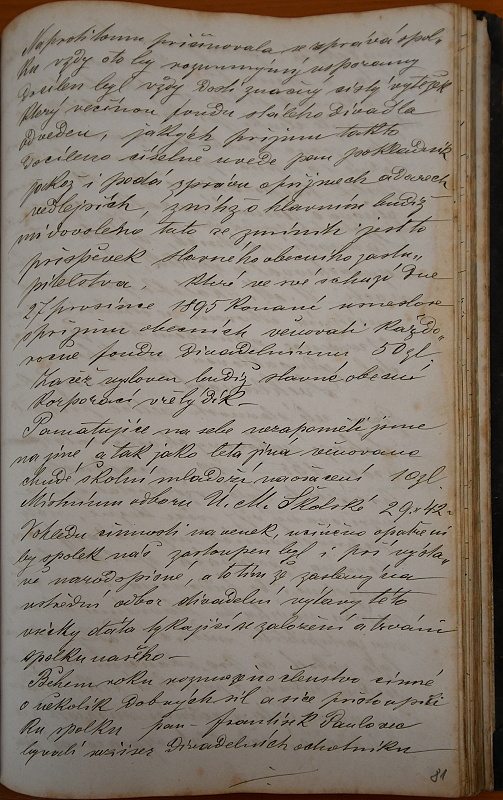 Naproti tomu přičiňovala se správa spol-
ku vždy oto by rozumnými usporami
docílen byl vždy dosti značný čistý výtěžek
který většinou fondu stálého divadla
odveden, jakých příjmů takto
docíleno číselně uvede pan pokladník
jakož i podá zprávu o příjmech a darech
vedlejších, z nichž o hlavním budiž
mi dovoleno tuto se zmíniti jest to
příspěvek slavného obecního zastu-
pitelstva, které ve své schůzi dne
27 prosince 1895 konané usneslo se
z příjmů obecních věnovati každo-
ročně fondu divadelnímu 50 zl
Začež vysloven budiž slavné obecní
korporaci vřelý dík.—
Pamatujíce na sebe nezapoměli jsme
na jiné, a tak jako léta jiná věnováno
chudé školní mládeži na ošacení 10 zl
Místnímu odboru Ú. M. Školské 29 x 42-
Vzhledu činnosti na venek, učiněno opatření
by spolek náš zastoupen byl i při výsta-
vě národopisné, a to tím že zaslány na
ústřední odbor divadelní výstavy této
všecky dáta týkající se založení a trvání
spolku našeho.—
Během roku rozmnoženo členstvo činné
o několik dobrých sil a sice přistoupili
ku spolku pan František Pavlovec
bývalí režiser divadelních ochotníků
81